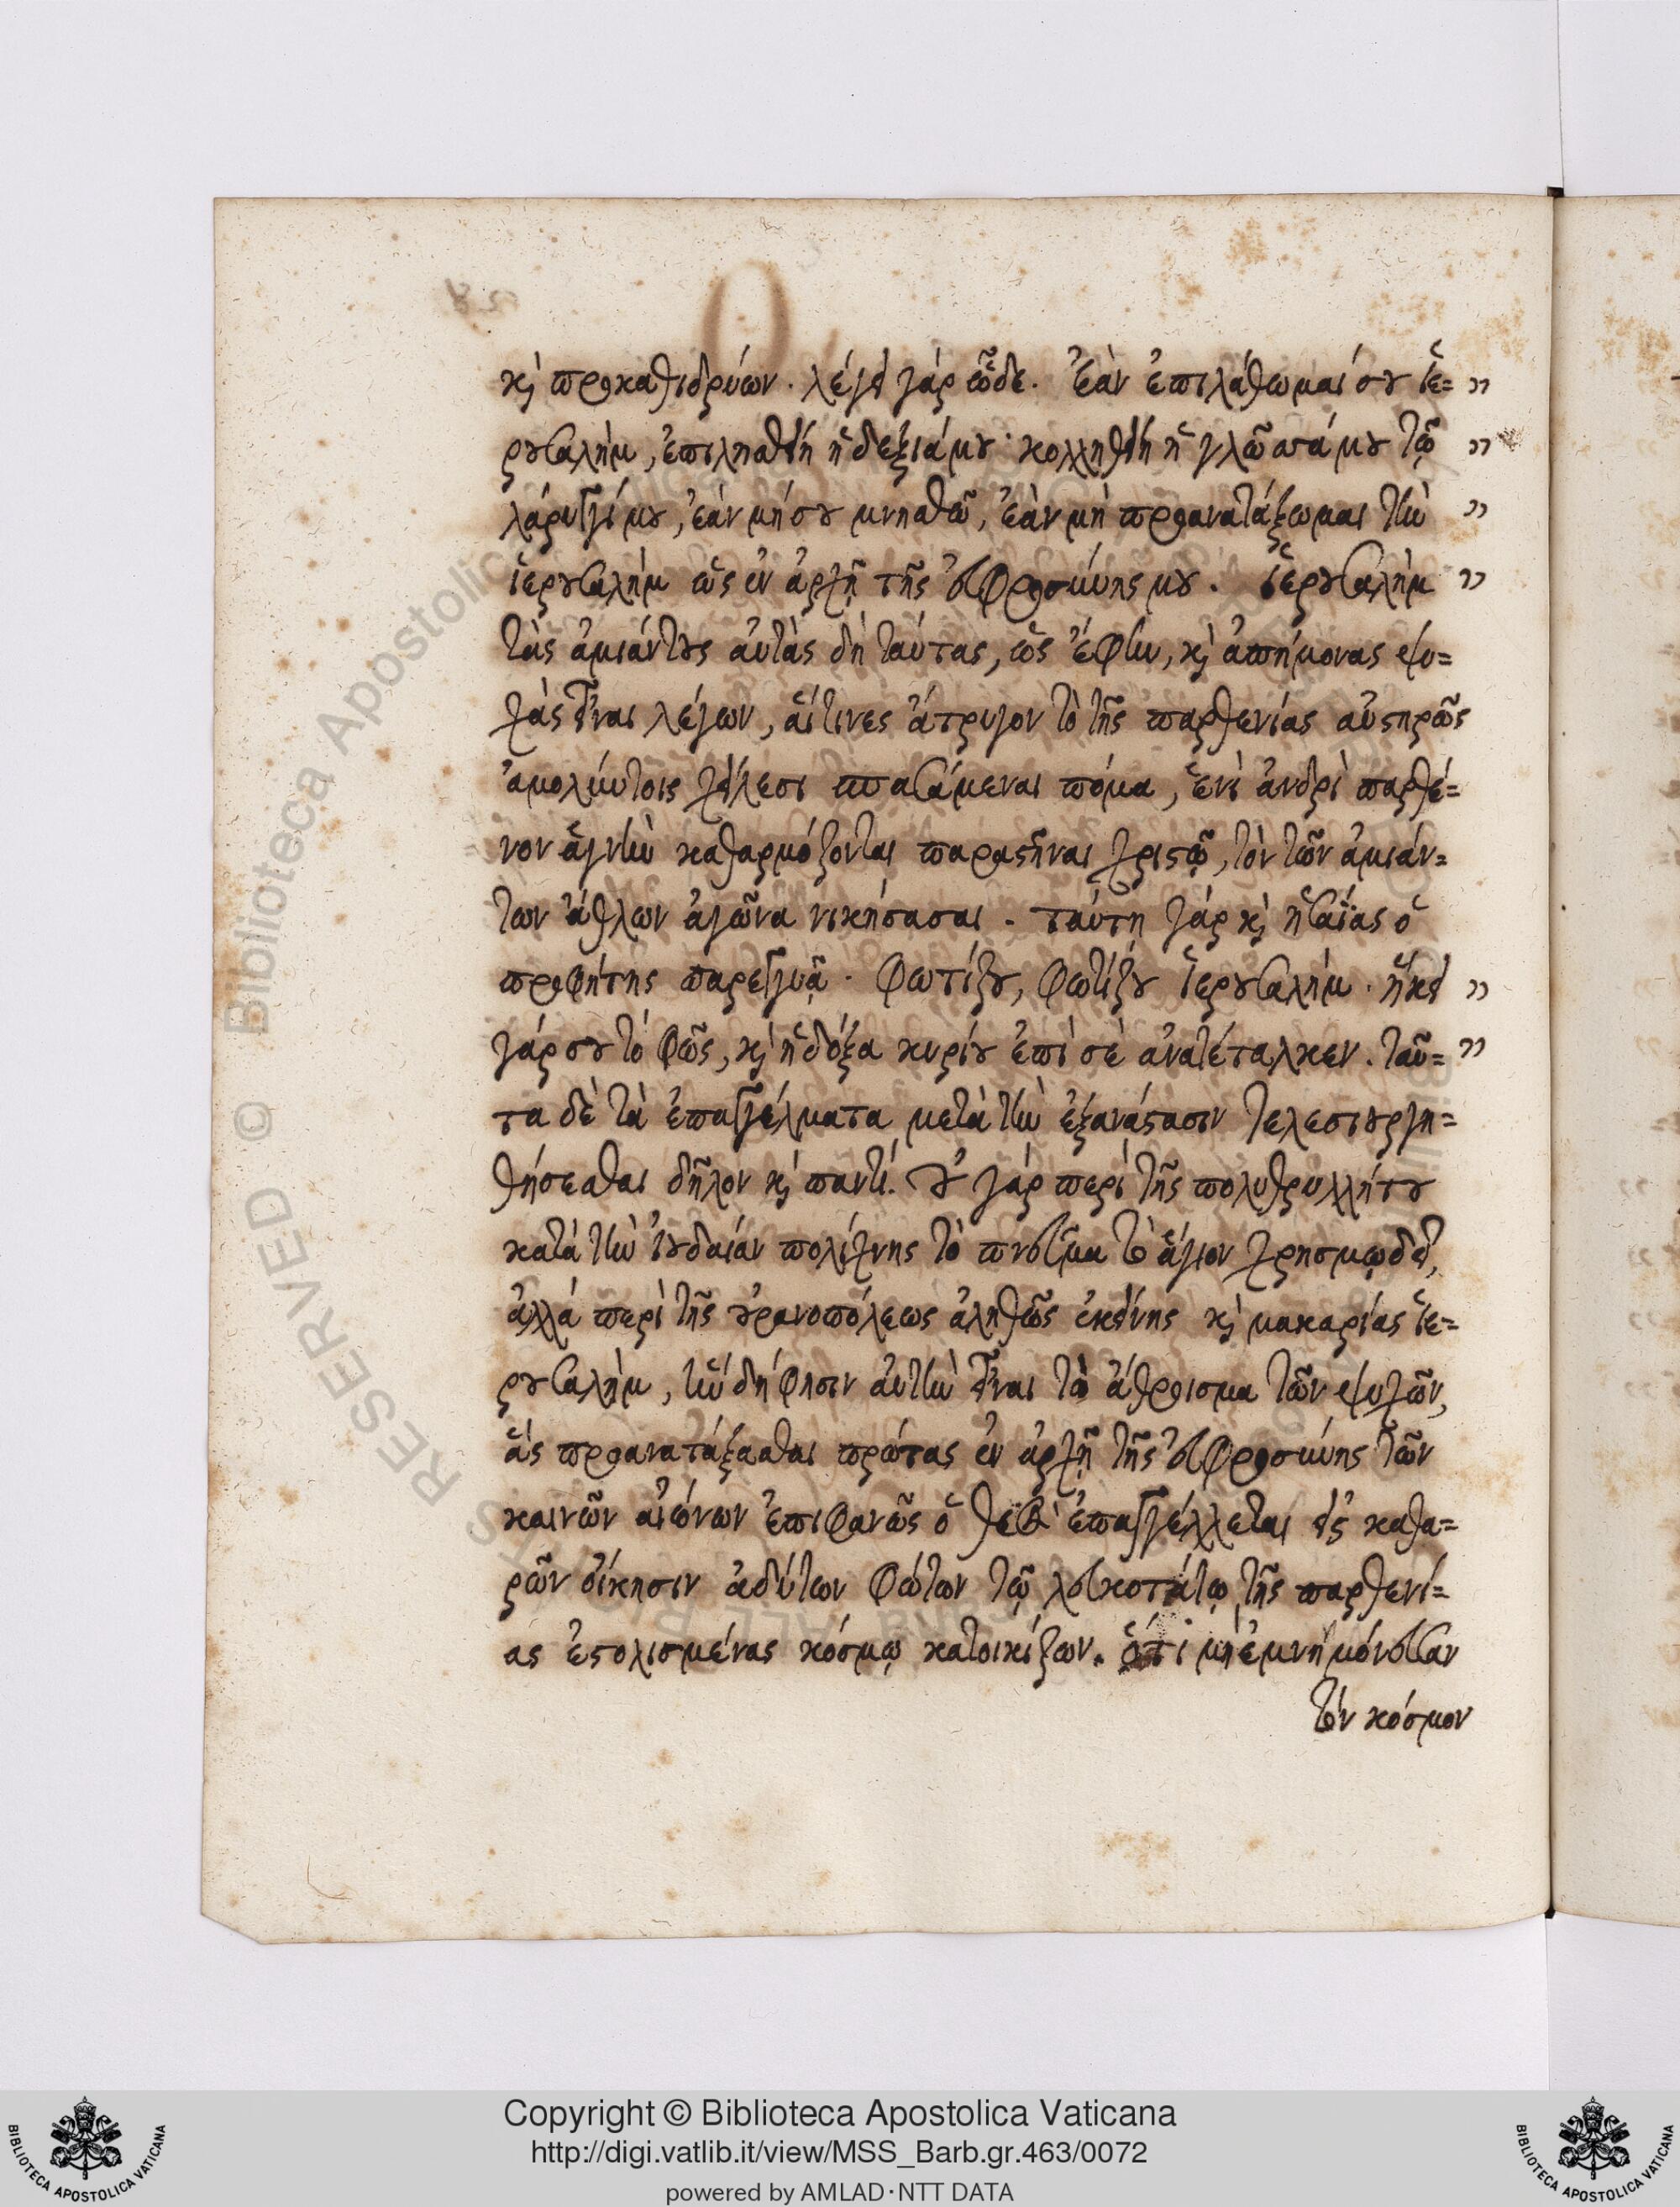 καὶ προκαθιδρύων. λέγει γάρ ὧδε. Ἐὰν ἐπιλάθωμαί σου ἱε= ”
ρουσαλήμ, ἐπιλησθείη ἡ δεξιά μου· κολληθείη ἡ γλῶσσά μου τῷ ”
λάρυγγί μου, ἐάν μή σου μνησθῶ, ἐὰν μὴ προανατάξωμαι τὴν ”
ἱερουσαλὴμ ὡς ἐν ἀρχῇ τῆς εὐφροσύνης μου. ἱερουσαλὴμ ”
τὰς ἀμιάντους αὐτὰς δὴ ταύτας, ὡς ἔφην, καὶ ἀπήμονας ψυ=
χὰς εἶναι λέγων, αἵτινες ἄτρυγον τὸ τῆς παρθενίας αὐστηρῶς
ἀμολύντοις χείλεσι σπασάμεναι πόμα, ἑνὶ ἀνδρὶ παρθέ=
νον ἁγνὴν καθαρμόζονται παραστῆναι χριστῷ, τὸν τῶν ἀμιάν=
των ἄθλων ἀγῶνα νικήσασαι. ταύτη γάρ καὶ ἡσαΐας ὁ
προφήτης παρεγγυᾷ. Φωτίζου, φωτίζου ἱερουσαλήμ. ἥκει ”
γάρ σου τὸ φῶς, καὶ ἡ δόξα κυρίου ἐπὶ σὲ ἀνατέταλκεν. ταῦ= ”
τα δὲ τὰ ἐπαγγέλματα μετὰ τὴν ἐξανάστασιν τελεσιουργη=
θήσεσθαι δῆλον καὶ παντί. οὐ γάρ περὶ τῆς πολυθρυλλήτου
κατὰ τὴν ἰουδαίαν πολίχνης τὸ πνεῦμα τὸ ἅγιον χρησμῳδεῖ,
ἀλλά περὶ τῆς οὐρανοπόλεως ἀληθῶς ἐκείνης καὶ μακαρίας ἱε=
ρουσαλὴμ, ἣν δή φησιν αὐτὴν εἶναι τὸ ἄθροισμα τῶν ψυχῶν,
ἃς προανατάξασθαι πρώτας ἐν ἀρχῇ τῆς εὐφροσύνης τῶν
καινῶν αἰώνων ἐπιφανῶς ὁ θεὸς ἐπαγγέλλεται εἰς καθα=
ρῶν οἴκησιν ἀδύτων φώτων τῷ λευκοτάτῳ τῆς παρθενί=
ας ἐστολισμένας κόσμῳ κατοικίζων. ὅτι μὴ ἐμνημόνευσαν
τὸν κόσμον
Copyright © Biblioteca Apostolica Vaticana
http://digi.vatlib.it/view/MSS_Barb.gr.463/0072
powered by AMLAD·NTT DATA
BIBLIOTECA APOSTOLICA VATICANA
BIBLIOTECA APOSTOLICA VATICANA